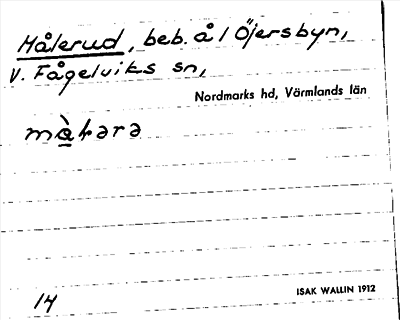 Målerud, beb. å 1 Öjersbyn,
V. Fågelviks sn,
Nordmarks hd, Värmlands län
14
ISAK WALLIN 1912